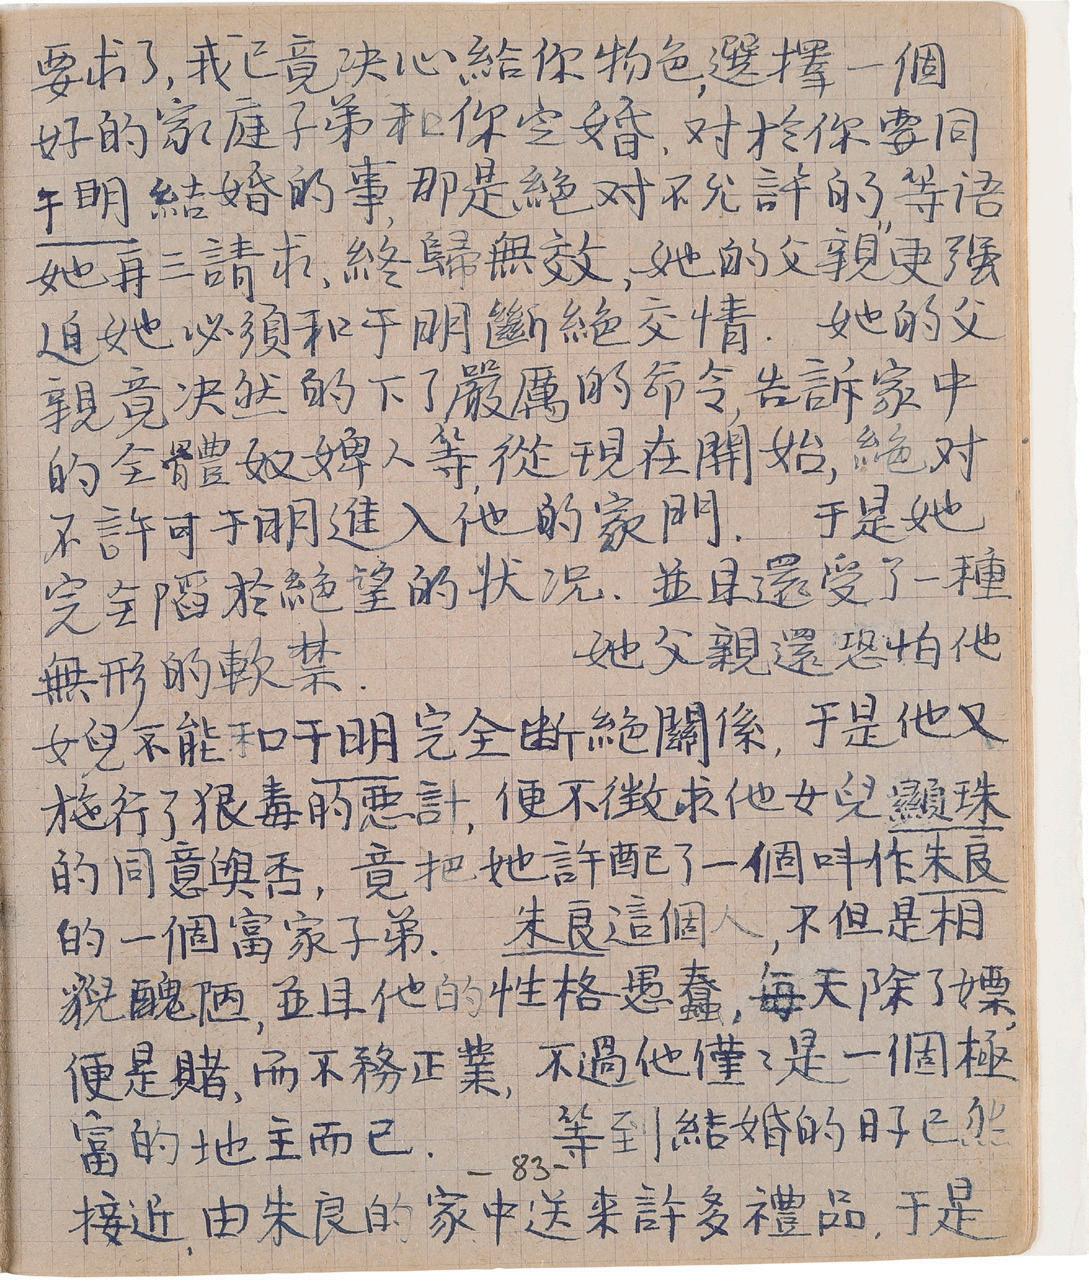 要求了,我已竟决心給你物色,選擇一個
好的家庭子弟和你定婚,对於你要同
于明結婚的事,那是絕对不允許的,"等语
她再三請求,終歸無效,她的父親更强
迫她必須和于明斷絕交情. 她的父
親竟决然的下了嚴厲的命令,告訴家中
的全體奴婢人等,從現在開始,絕对
不許可于明進入他的家門. 于是她
完全陷於絕望的狀况.並且還受了一種
無形的軟禁. 她父親還恐怕他
女兒不能和于明完全断絕關係,于是他又
施行了狠毒的惡計,便不徵求他女兒顯珠
的同意與否,竟把她許配了一個叫作朱良
的一個富家子弟. 朱良這個人,不但是相
貌醜陋,並且他的性格愚蠢,每天除了嫖,
便是賭,而不務正業,不過他僅々是一個極
富的地主而已. 等到結婚的日子已然
接近,由朱良的家中送來許多禮品,于是
- 83 -